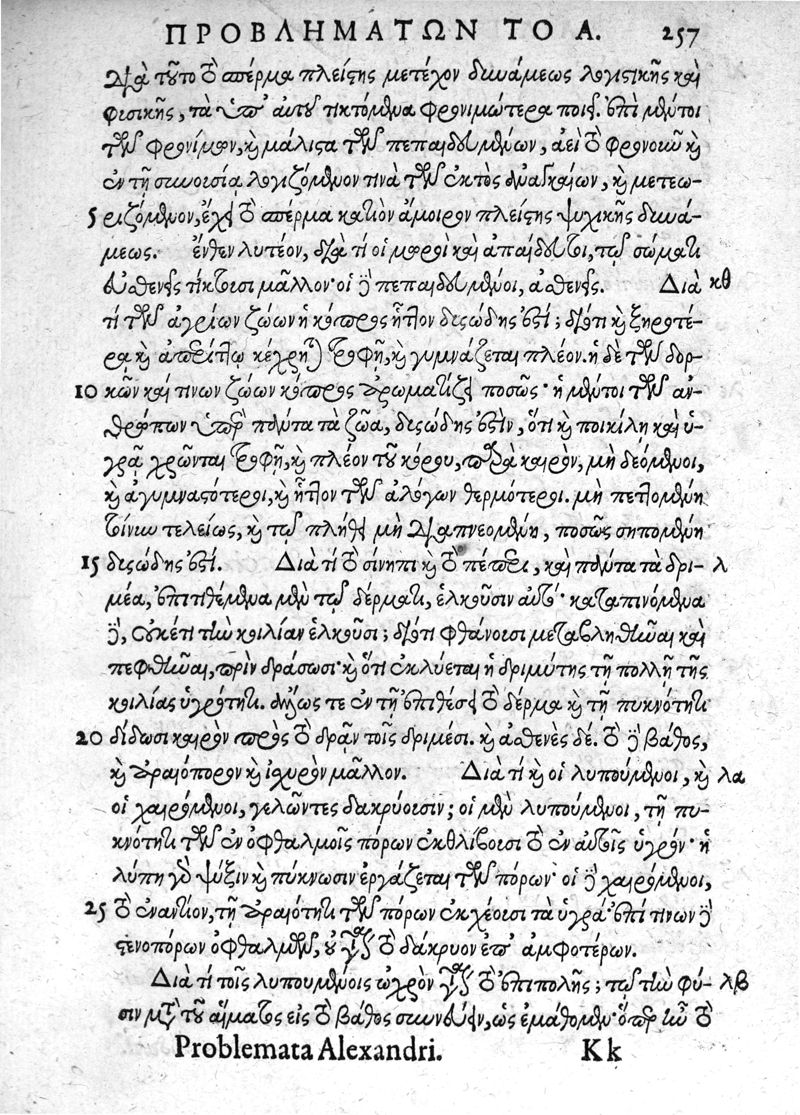 ΠΡΟΒΛΗΜΑΤΩΝ ΤΟ Α. 257
διὰ τοῦτο τὸ σπέρμα πλείστης μετέχον δυνάμεως λογιστικῆς καὶ
φυσικῆς, τὰ ὑπ' αὐτοῦ τικτόμενα φρονιμώτερα ποιεῖ. ἐπὶ μέντοι
τῶν φρονίμων, καὶ μάλιστα τῶν πεπαιδευμένων, ἀεὶ τὸ φρονοῦν καὶ
ἐν τῇ συνουσίᾳ λογιζόμενον τινὰ τῶν ἐκτὸς ἀναγκαίων, καὶ μετεω-
5 ριζόμενον, ἔχει τὸ σπέρμα κατιὸν ἄμοιρον πλείστης ψυχικῆς δυνά-
μεως. ἔνθεν λυτέον, διὰ τί οἱ μωροὶ καὶ ἀπαίδευτοι, τῷ σώματι
εὐσθενεῖς τίκτουσι μᾶλλον· οἱ δὲ πεπαιδευμένοι, ἀσθενεῖς. Διὰ κθ
τί τῶν ἀγρίων ζώων ἡ κόπρος ἧττον δυσώδης ἐστί; διότι καὶ ξηροτέ-
ρᾳ καὶ ἀπερίττῳ κέχρηται τροφῇ, καὶ γυμνάζεται πλέον. ἡ δὲ τῶν δορ-
10 κῶν καί τινων ζώων κόπρος ἀρωματίζει ποσῶς· ἡ μέντοι τῶν ἀν-
θρώπων ὑπὲρ πάντα τὰ ζῶα, δυσώδης ἐστὶν, ὅτι καὶ ποικίλῃ καὶ ὑ-
γρᾷ χρῶνται τροφῇ, καὶ πλέον τοῦ κόρου, παρὰ καιρὸν, μὴ δεόμενοι,
καὶ ἀγυμναστότεροι, καὶ ἧττον τῶν ἀλόγων θερμότεροι. μὴ πεττομένη
τοίνυν τελείως, καὶ τῷ πλήθει μὴ διαπνεομένη, ποσῶς σηπομένη
15 δυσώδης ἐστί. Διὰ τί τὸ σίνηπι καὶ τὸ πέπερι, καὶ πάντα τὰ δρι- λ
μέα, ἐπιτιθέμενα μὲν τῷ δέρματι, ἑλκοῦσιν αὐτό· καταπινόμενα
δὲ, οὐκέτι τὴν κοιλίαν ἑλκοῦσι; διότι φθάνουσι μεταβληθῆναι καὶ
πεφθῆναι, πρὶν δράσωσι· καὶ ὅτι ἐκλύεται ἡ δριμύτης τῇ πολλῇ τῆς
κοιλίας ὑγρότητι. ἄλλως τε ἐν τῇ ἐπιθέσει τὸ δέρμα καὶ τῇ πυκνότητι
20 δίδωσι καιρὸν πρὸς τὸ δρᾶν τοῖς δριμέσι. καὶ ἀσθενὲς δέ. τὸ δὲ βάθος,
καὶ ἀραιόπορον καὶ ἰσχυρὸν μᾶλλον. Διὰ τί καὶ οἱ λυπούμενοι, καὶ λα
οἱ χαιρόμενοι, γελῶντες δακρύουσιν; οἱ μὲν λυπούμενοι, τῇ πυ-
κνότητι τῶν ἐν ὀφθαλμοῖς πόρων ἐκθλίβουσι τὸ ἐν αὐτοῖς ὑγρόν· ἡ
λύπη γὰρ ψύξιν καὶ πύκνωσιν ἐργάζεται τῶν πόρων· οἱ δὲ χαιρόμενοι,
25 τὸ ἐναντίον, τῇ ἀραιότητι τῶν πόρων ἐκχέουσι τὰ ὑγρά· ἐπί τινων δὲ
στενοπόρων ὀφθαλμῶν, οὐ γίνεται τὸ δάκρυον ἐπ' ἀμφοτέρων.
Διὰ τί τοῖς λυπουμένοις ὠχρὸν γίνεται τὸ ἐπιπολῆς; τῷ τὴν φύ- λβ
σιν μετὰ τοῦ αἵματος εἰς τὸ βάθος συνιέναι, ὡς ἐμάθομεν· ὅπερ ἦν τὸ
Problemata Alexandri. Kk